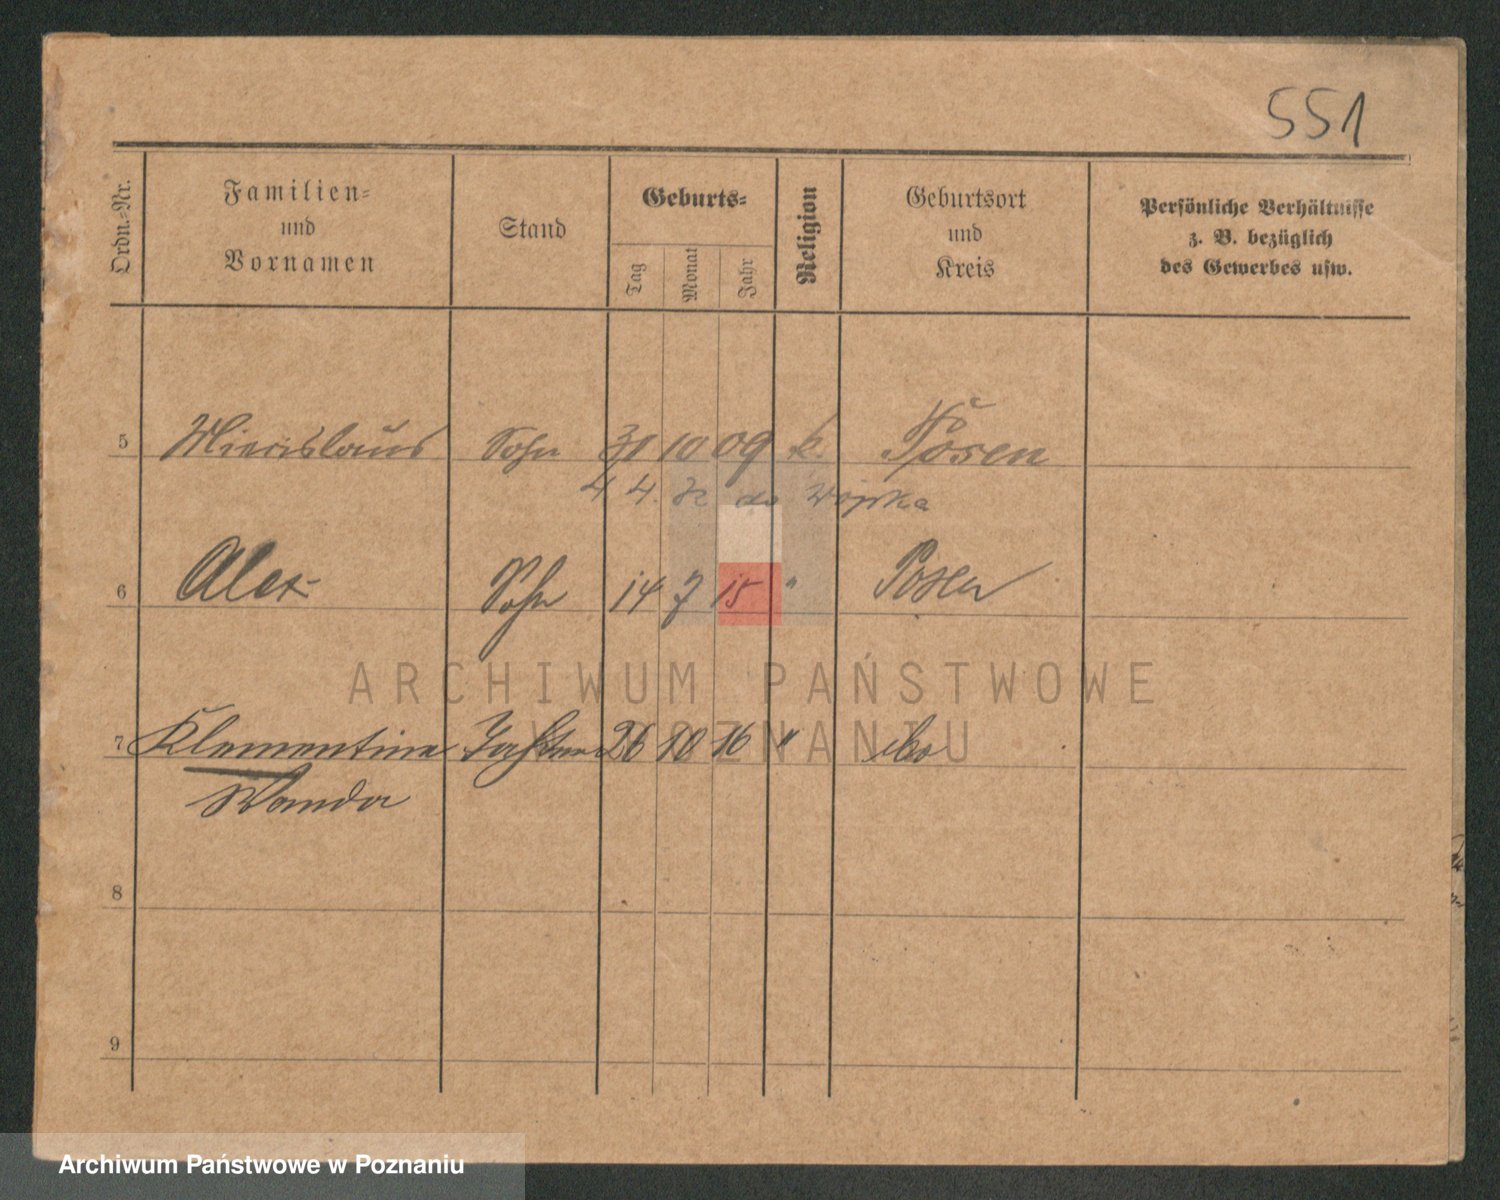 551
Ordn.=Nr.
Familien=
und
Vornamen
Stand
Geburts=
Tag
Monat
Jahr
Religion
Geburtsort
und
Kreis
Persönliche Verhältnisse
z. B. bezüglich
des Gewerbes usw.
5 Miecislaus Sohn 30 10 09 k. Posen
4 4. do Wojska
6 Alex Sohn 14 7 15 " Posen
ARCHIWUM PAŃSTWOWE
W POZNANIU
7 Klementine Tochter 26 10 16 "
Wanda
8
9
Archiwum Państwowe w Poznaniu